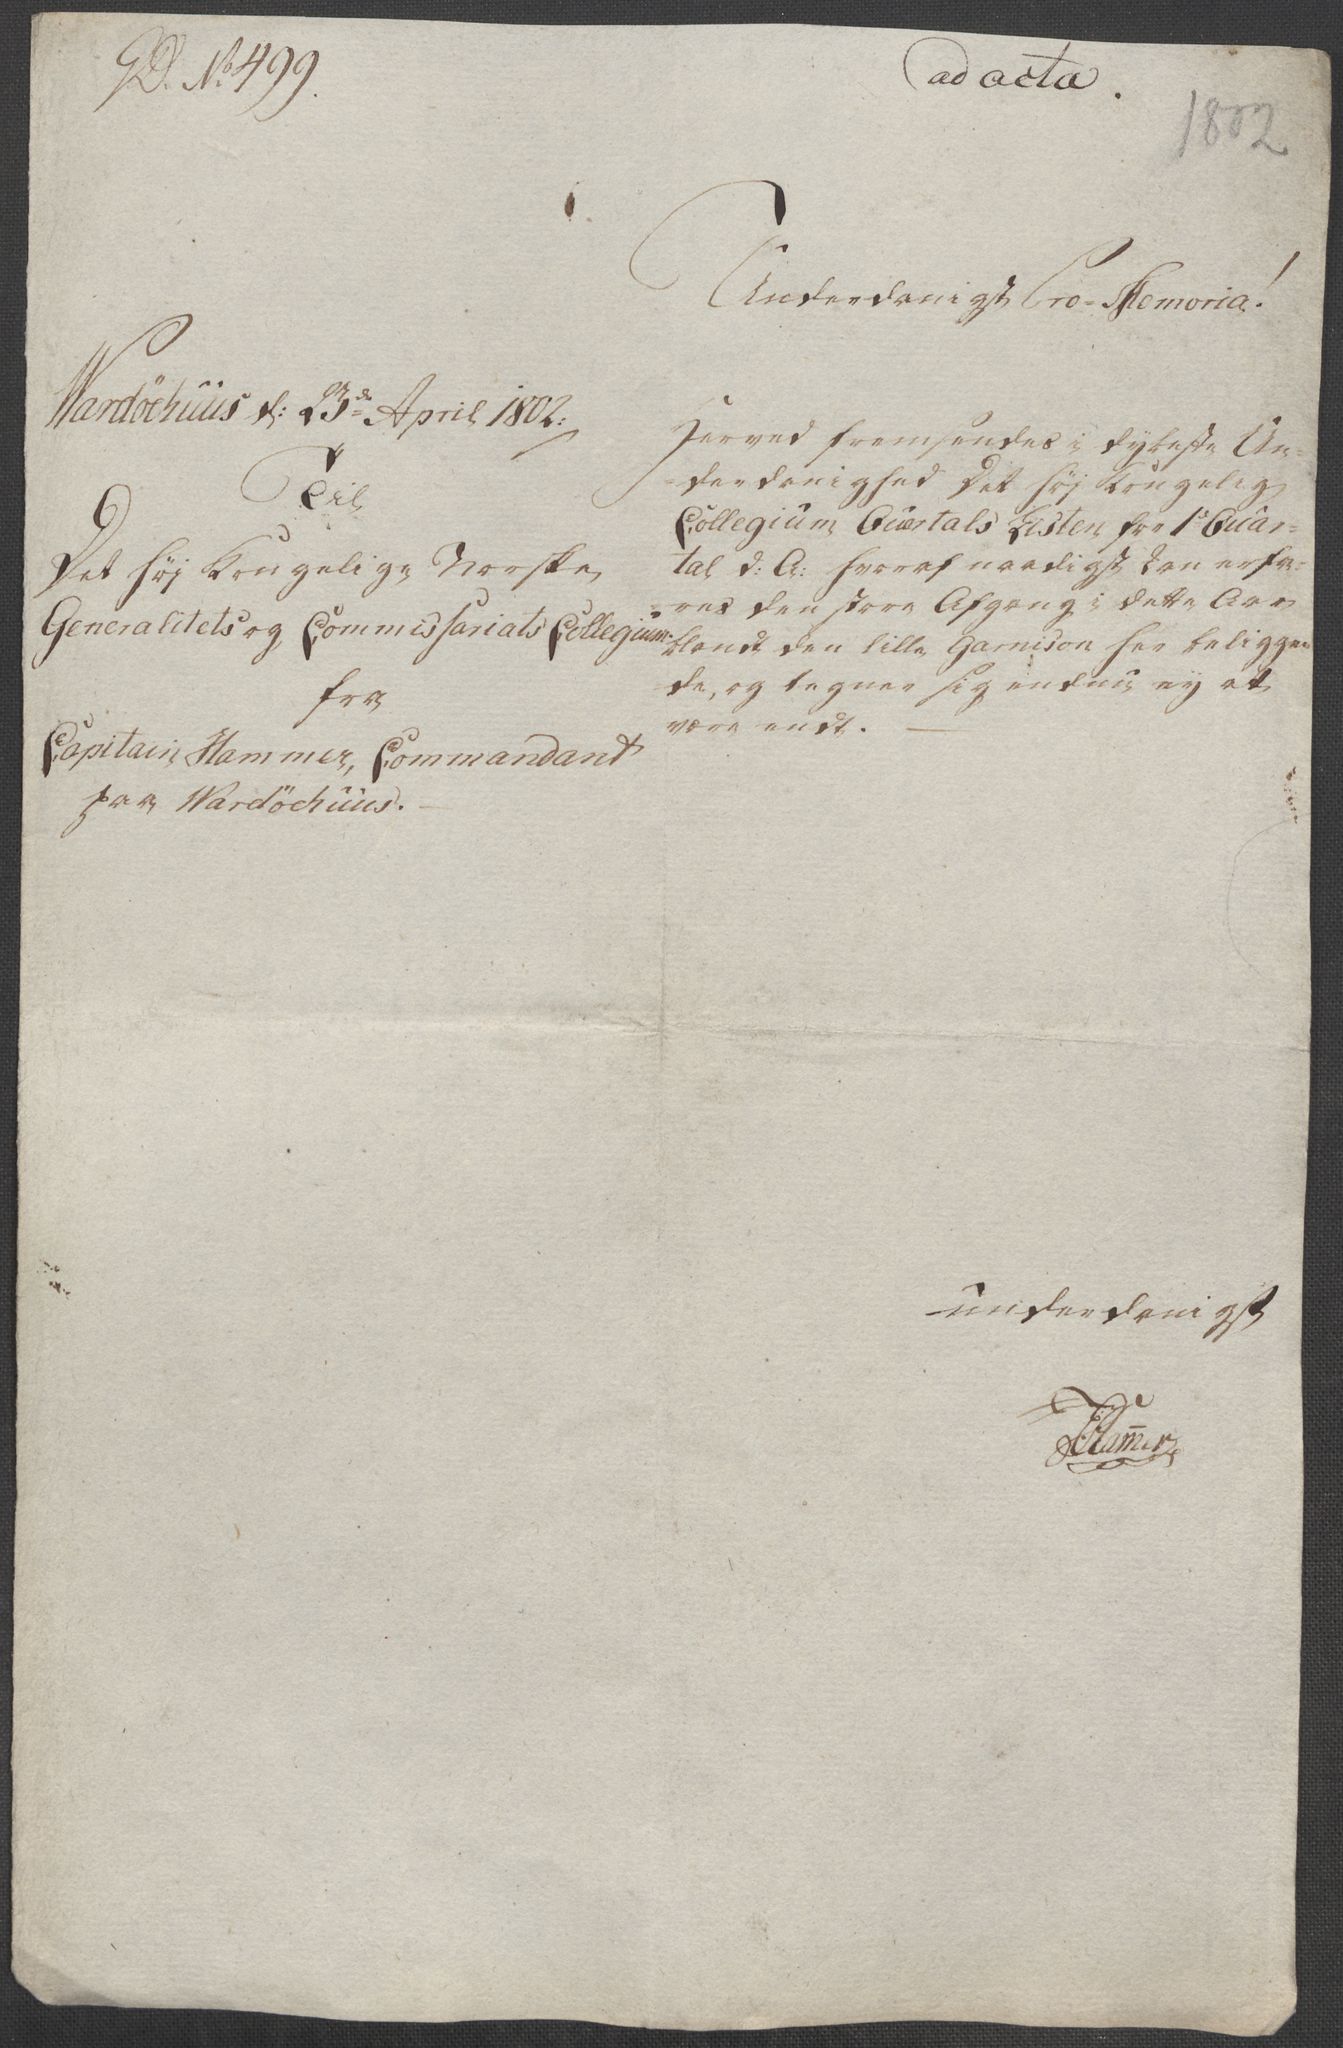 GD. No 499.
ad acta.
1802
Underdanigst Pro-Memoria!
Wardöehuus d: 23de April 1802:
Til
Det høj Kongelige Norske
Generalitets og Commissariats Collegium
fra
Capitain Hammer, Commandant
paa Wardöehuus.
Herved fremsendes i dybeste Un-
derdanighed Det høj Kongelig
Collegium Qvartals Listen fra 1ste Qvar-
tal d: A: hvoraf naadigst kan erfa-
res den store Afgang i dette Aar
blandt den lille Garnison her beliggen
de, og tegner sig endnu ey at
være endt.
underdanigst
Hammer